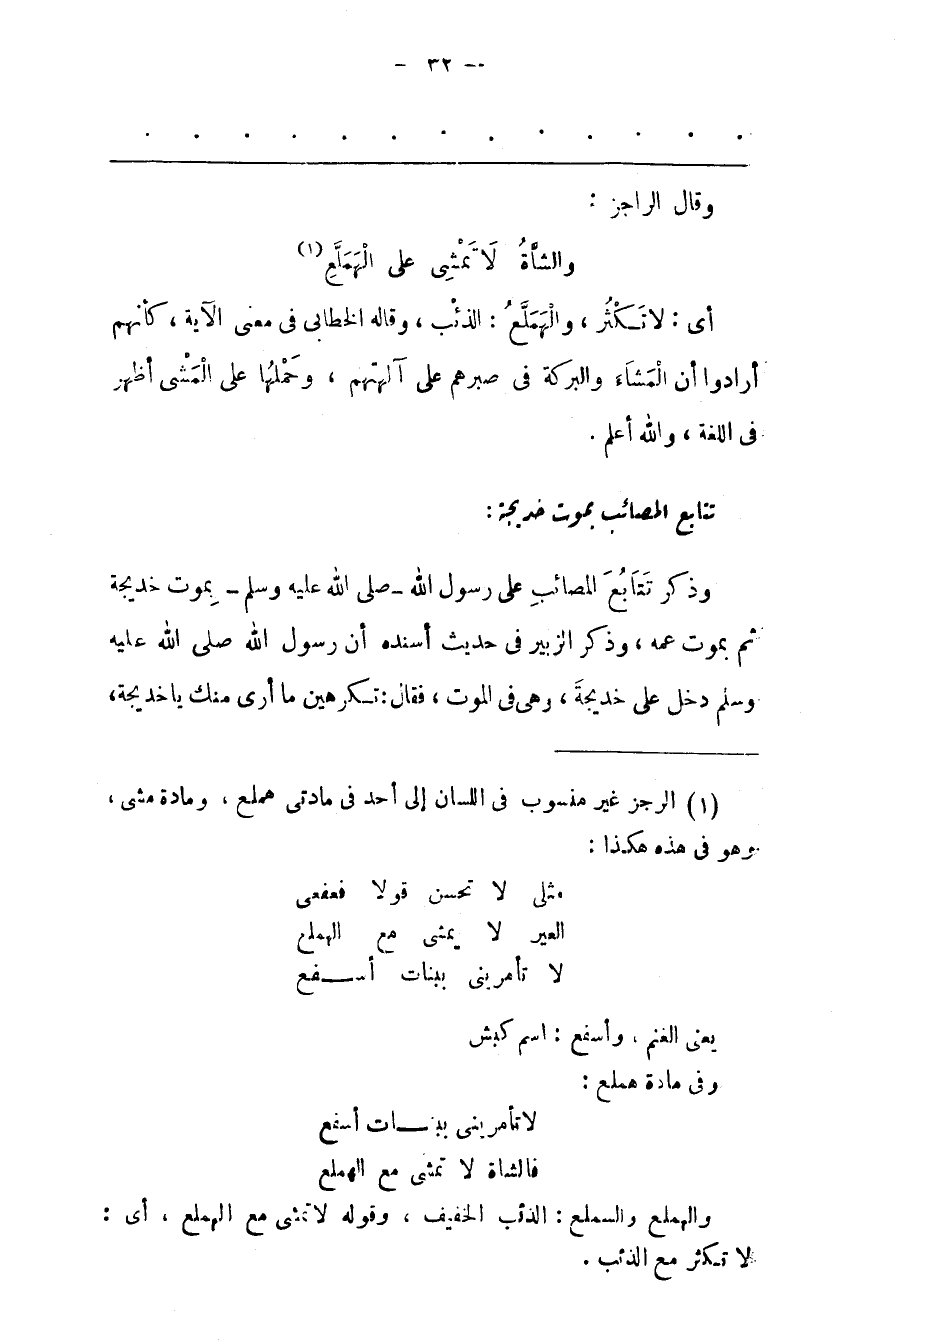 - ٣٢ -
وقال الراجز :
والشَّاةُ لَا تَمْشِى على الْهَمَلَّعِ (١)
أى : لا تَكْثُر ، والْهَمَلَّعُ : الذئْب ، وقاله الخطابى فى معنى الآية ، كأنهم
أرادوا أن الْمَشَاء والبركة فى صبرهم على آلهتهم ، وحَمْلُها على الْمَشْى أظهر
فى اللغة ، والله أعلم .
تتابع المصائب بموت خديجة :
وذكر تَتَابُعَ المصائبِ على رسول الله - صلى الله عليه وسلم - بِموت خديجة
ثم بموت عمه ، وذكر الزبير فى حديث أسنده أن رسول الله صلى الله عليه
وسلم دخل على خديجةَ ، وهى فى الموت ، فقال : تكرهين ما أرى منك يا خديجة ،
(١) الرجز غير منسوب فى اللسان إلى أحد فى مادتى هملع ، ومادة مشى ،
وهو فى هذه هكذا :
مثلى لا تحسن قولا فعفعى
العير لا يمشى مع الهملع
لا تأمرينى ببنات أسفع
يعنى الغنم ، وأسفع : اسم كبش
وفى مادة هملع :
لا تأمرينى ببنات أسفع
فالشاة لا تمشى مع الهملع
والهملع والسملع : الذئب الخفيف ، وقوله لا تمشى مع الهملع ، أى :
لا تكثر مع الذئب .